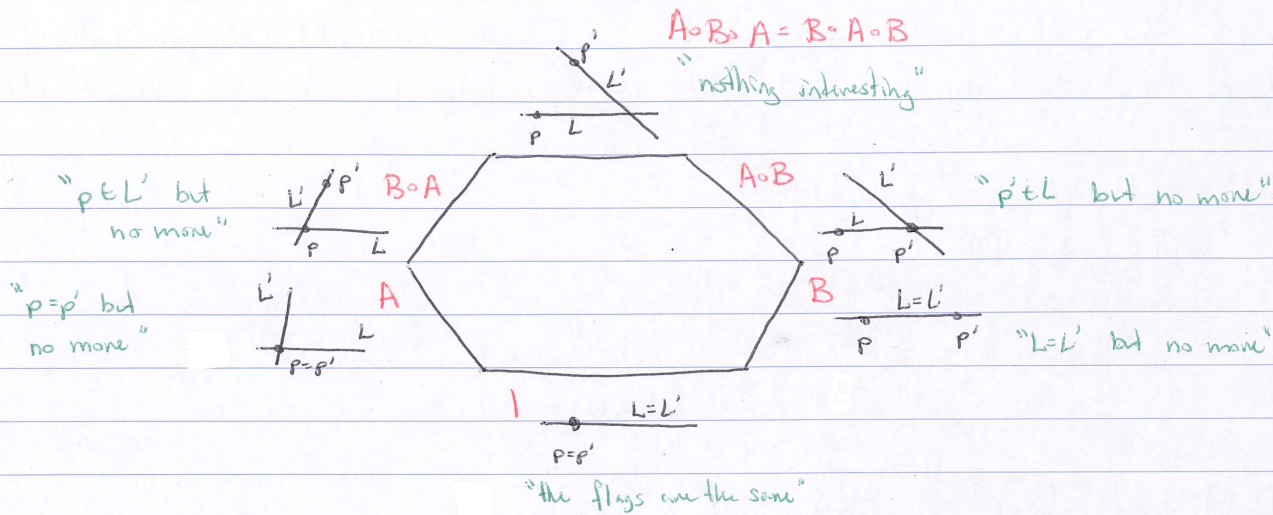 A∘B∘A = B∘A∘B
"nothing interesting"
p'
L'
p
L
"p ∈ L' but
no more"
L'
p'
p
L
B∘A
A∘B
L'
L
p
p'
"p' ∈ L but no more"
"p=p' but
no more"
L'
L
p=p'
A
B
L=L'
p
p'
"L=L' but no more"
1
L=L'
p=p'
"the flags are the same"